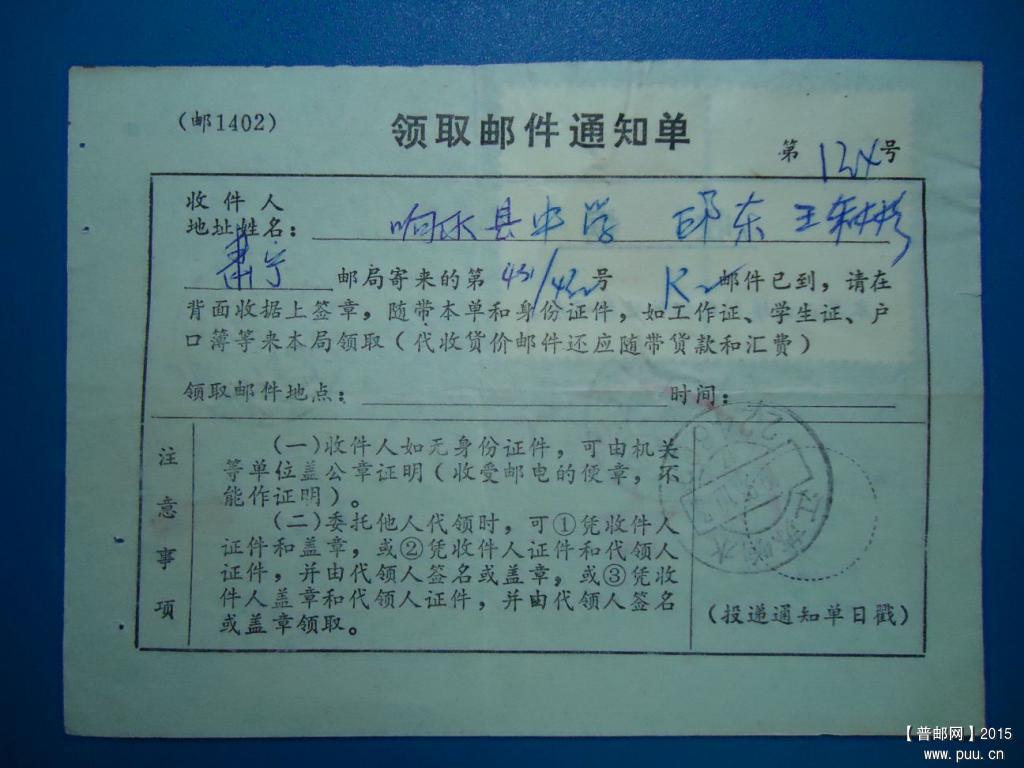 (邮1402)
领取邮件通知单
第 124 号
收件人
地址姓名： 响水县中学 邱东 王
肃宁 邮局寄来的第 431/432 号 邮件已到，请在
背面收据上签章，随带本单和身份证件，如工作证、学生证、户
口簿等来本局领取（代收货价邮件还应随带货款和汇费）
领取邮件地点： 时间：
注意事项
（一）收件人如无身份证件，可由机关
等单位盖公章证明（收受邮电的便章，不
能作证明）。
（二）委托他人代领时，可①凭收件人
证件和盖章，或②凭收件人证件和代领人
证件，并由代领人签名或盖章，或③凭收
件人盖章和代领人证件，并由代领人签名
或盖章领取。
江苏响水
（投递通知单日戳）
【普邮网】2015
www.puu.cn